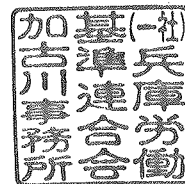 (一社)兵庫労働
基準連合会
加古川事務所